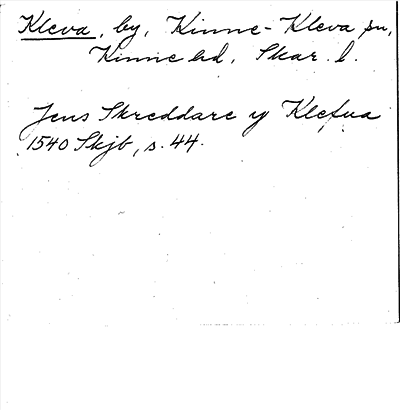 Kleva, by, Kinne-Kleva sn,
Kinne hd, Skar. l.
Jens Skreddare y Klefua
1540 Skjb, s. 44.